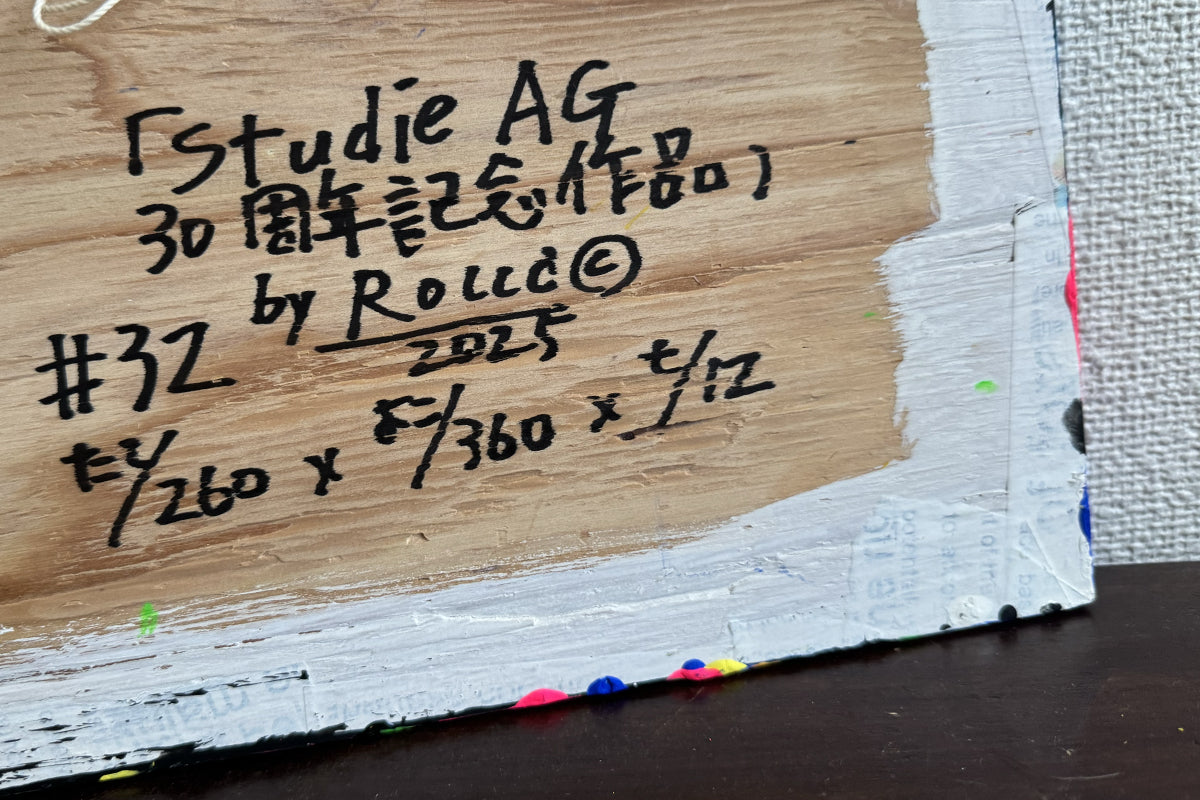 「Studie AG
30周年記念作品」
by Rollcd©
2025
#32
たて/260 × よこ/360 × t/12